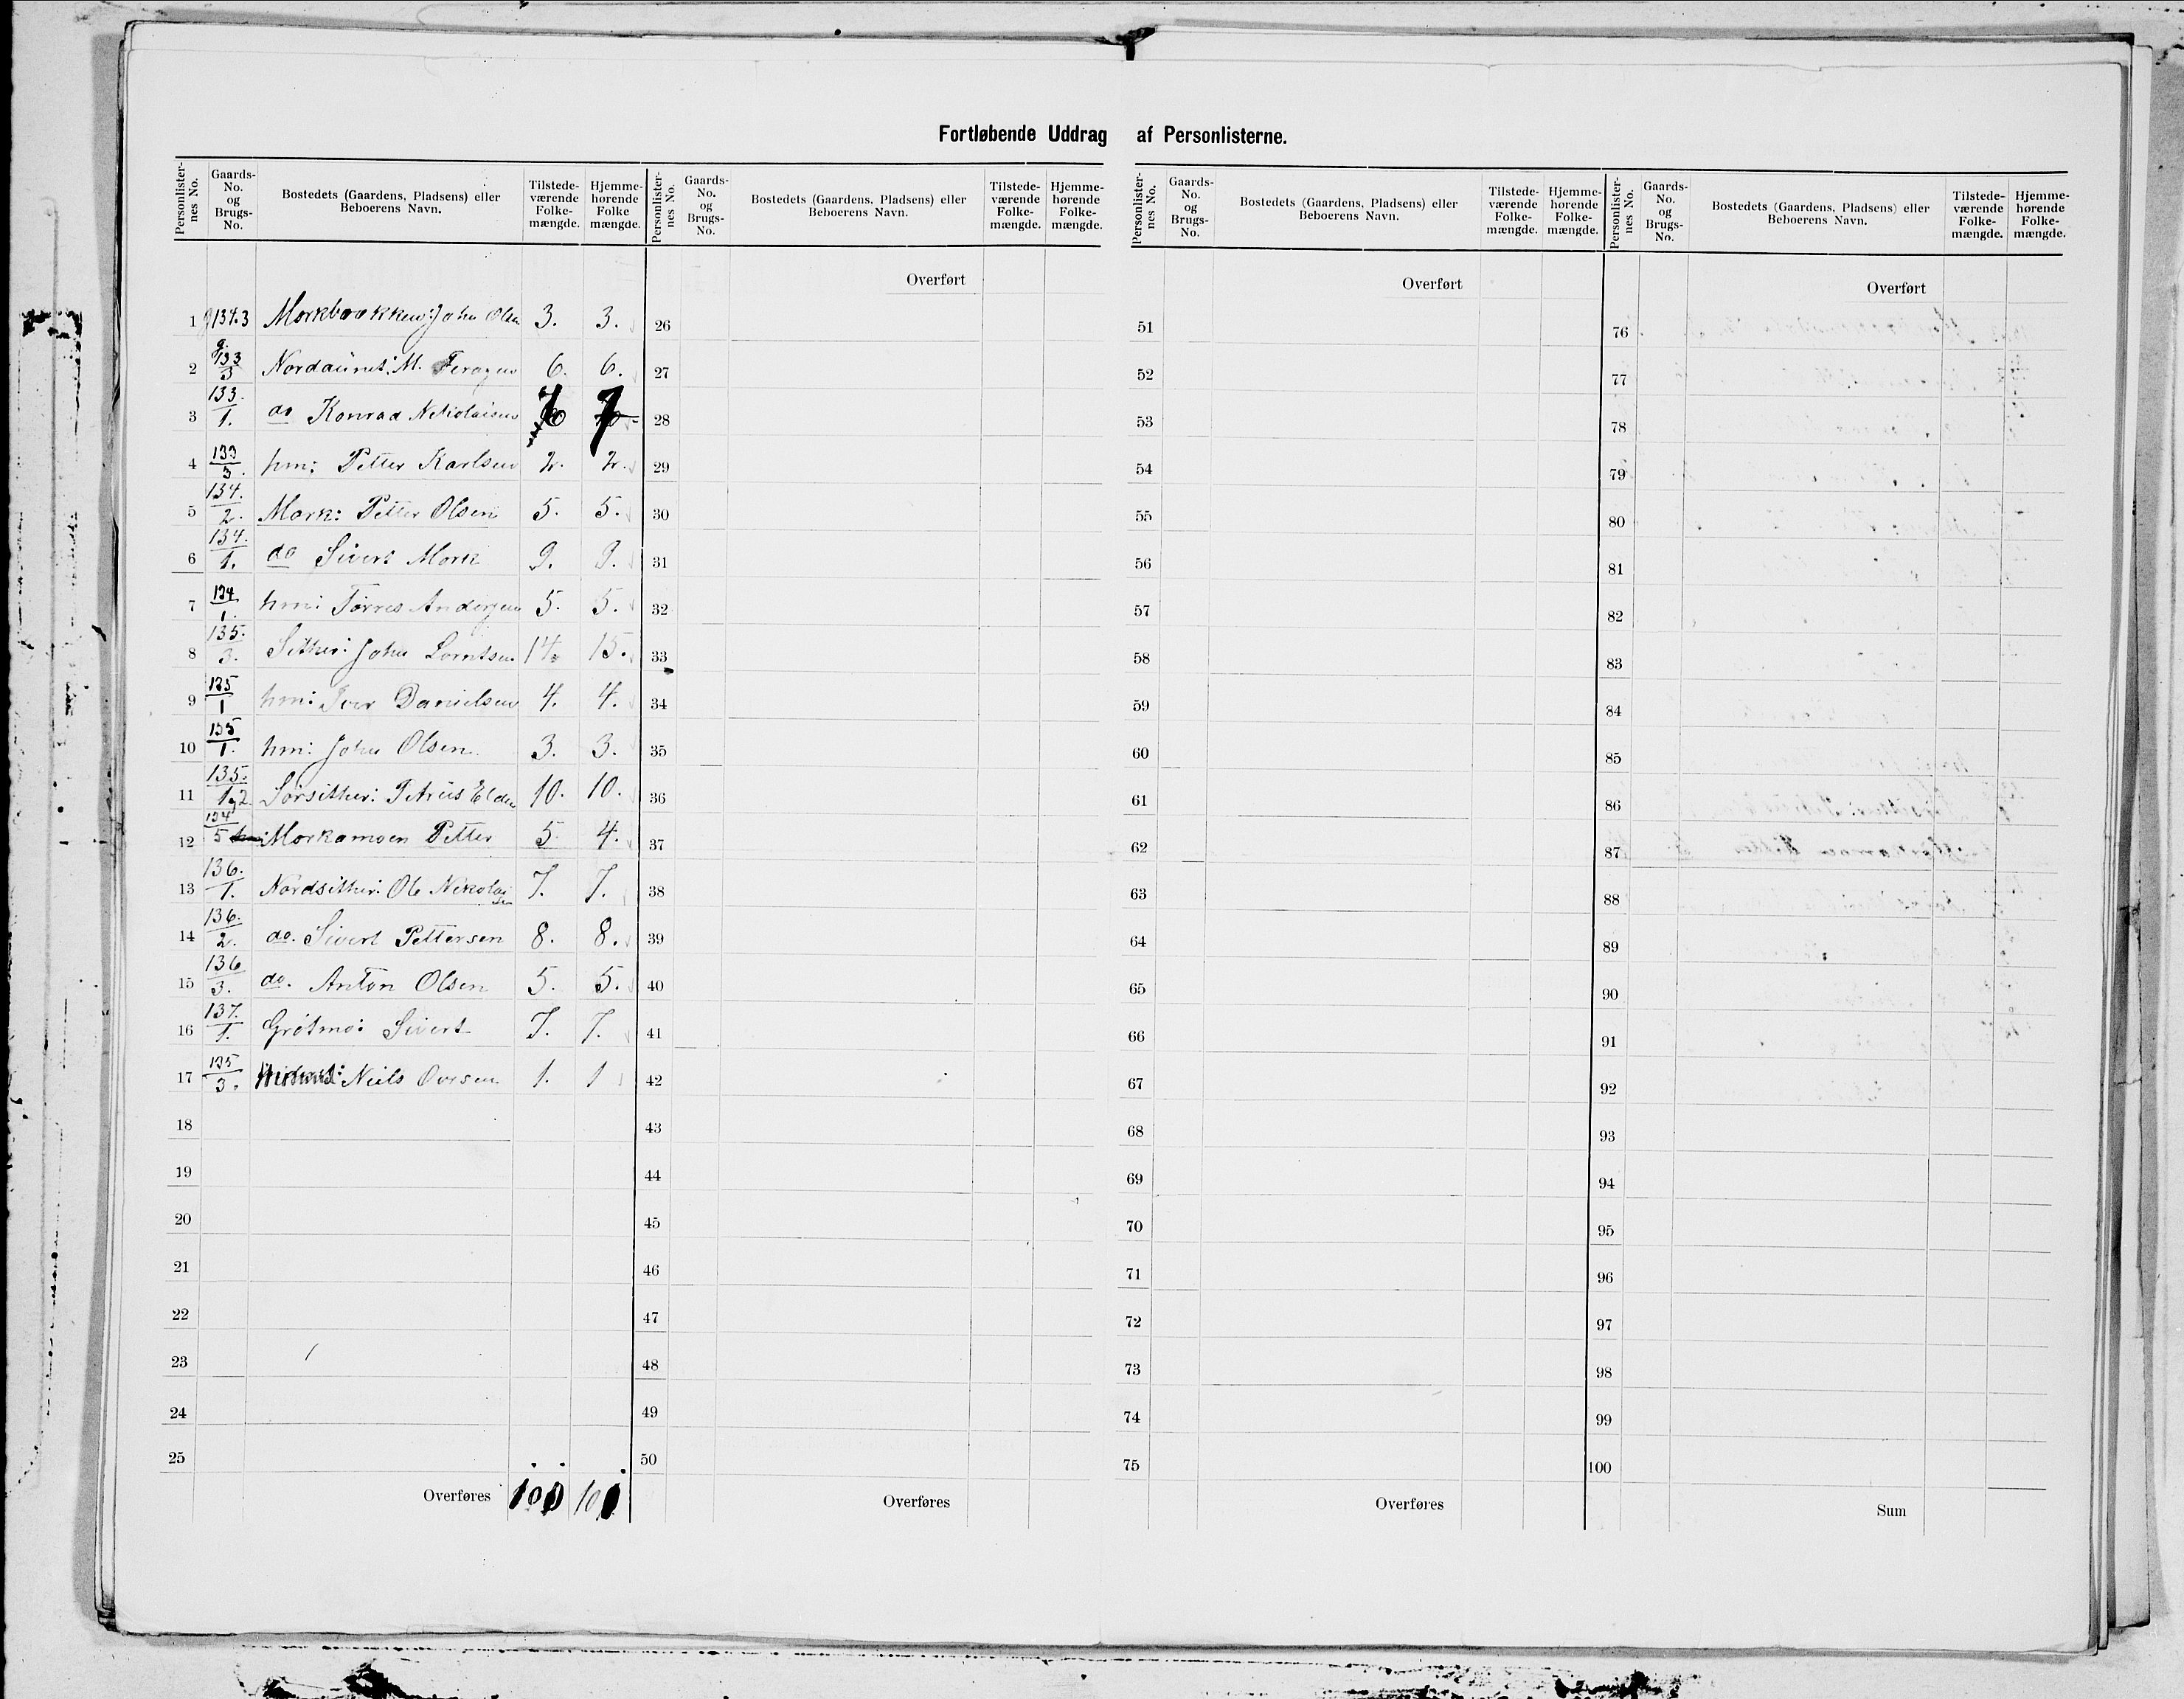 Fortløbende Uddrag af Personlisterne.
Personlisternes No. Gaards-No. og Brugs-No. Bostedets (Gaardens, Pladsens) eller Beboerens Navn. Tilstedeværende Folkemængde. Hjemmehørende Folkemængde.
Personlisternes No. Gaards-No. og Brugs-No. Bostedets (Gaardens, Pladsens) eller Beboerens Navn. Tilstedeværende Folkemængde. Hjemmehørende Folkemængde.
Personlisternes No. Gaards-No. og Brugs-No. Bostedets (Gaardens, Pladsens) eller Beboerens Navn. Tilstedeværende Folkemængde. Hjemmehørende Folkemængde.
Personlisternes No. Gaards-No. og Brugs-No. Bostedets (Gaardens, Pladsens) eller Beboerens Navn. Tilstedeværende Folkemængde. Hjemmehørende Folkemængde.
Overført Overført Overført
1 John Olsen 3. 3. 26 51 76
2 133/3 M. 6. 6. 27 52 77
3 133/1. do Konrad 7 7 28 53 78
4 133/3. hm: Petter Karlsen 2. 2. 29 54 79
5 134./2. Mork: Petter Olsen 5. 5. 30 55 80
6 134./1. do Sivert Mork 9. 9. 31 56 81
7 134/1. hm: Tørres 5. 5. 32 57 82
8 135./3. Sitter: John Lorntsen 14. 15. 33 58 83
9 135/1 hm: Iver Danielsen 4. 4. 34 59 84
10 135/1. hm: John Olsen 3. 3. 35 60 85
11 135./1 2. Sørsitter: Petrus Elden 10. 10. 36 61 86
12 134/5 Morkamoen Petter 5 4. 37 62 87
13 136./1. Nordsitter: Ole Nikolaisen 7. 7. 38 63 88
14 136./2. do. Sivert Pettersen 8. 8. 39 64 89
15 136/3. do. Anton Olsen 5. 5. 40 65 90
16 137./1. Grøtmo: Sivert 7. 7. 41 66 91
17 135/3. Niels 1. 1 42 67 92
18 43 68 93
19 44 69 94
20 45 70 95
21 46 71 96
22 47 72 97
23 48 73 98
24 49 74 99
25 50 75 100
Overføres 100 101 Overføres Overføres Sum